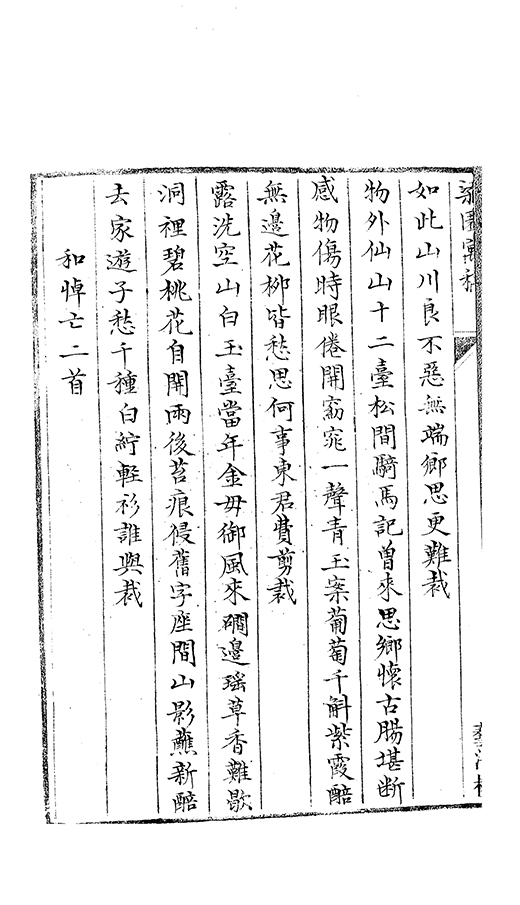 如此山川良不惡無端鄉思更難裁
物外仙山十二臺松間騎馬記曾來思鄉懷古腸堪斷
感物傷時眼倦開窈窕一聲青玉案葡萄千斛紫霞醅
無邊花柳皆愁思何事東君費剪裁
露洗空山白玉臺當年金毋御風來磵邊瑶草香難歇
洞裡碧桃花自開雨後苔痕侵舊字座間山影蘸新醅
去家遊子愁千種白紵輕衫誰與裁
和悼亡二首